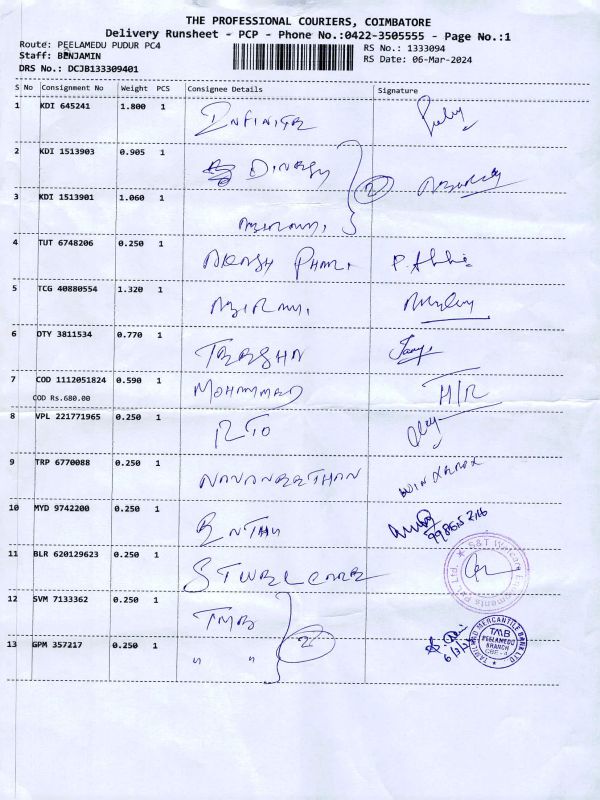 THE PROFESSIONAL COURIERS, COIMBATORE
Delivery Runsheet - PCP - Phone No.:0422-3505555 - Page No.:1
Route: PEELAMEDU PUDUR PC4
RS No.: 1333094
Staff: BENJAMIN
RS Date: 06-Mar-2024
DRS No.: DCJB133309401
S No Consignment No Weight PCS Consignee Details Signature
1 KDI 645241 1.800 1
2 KDI 1513903 0.905 1 DINESH 2
3 KDI 1513901 1.060 1
4 TUT 6748206 0.250 1 AKASH
5 TCG 40880554 1.320 1
6 DTY 3811534 0.770 1
7 COD 1112051824 0.590 1 MOHAMMED H/R
COD Rs.680.00
8 VPL 221771965 0.250 1 RTO
9 TRP 6770088 0.250 1 NAVANEETHAN
10 MYD 9742200 0.250 1
11 BLR 620129623 0.250 1
12 SVM 7133362 0.250 1 TMB
13 GPM 357217 0.250 1 " " 2
TAMILNAD MERCANTILE BANK LTD.
TMB
PEELAMEDU
BRANCH